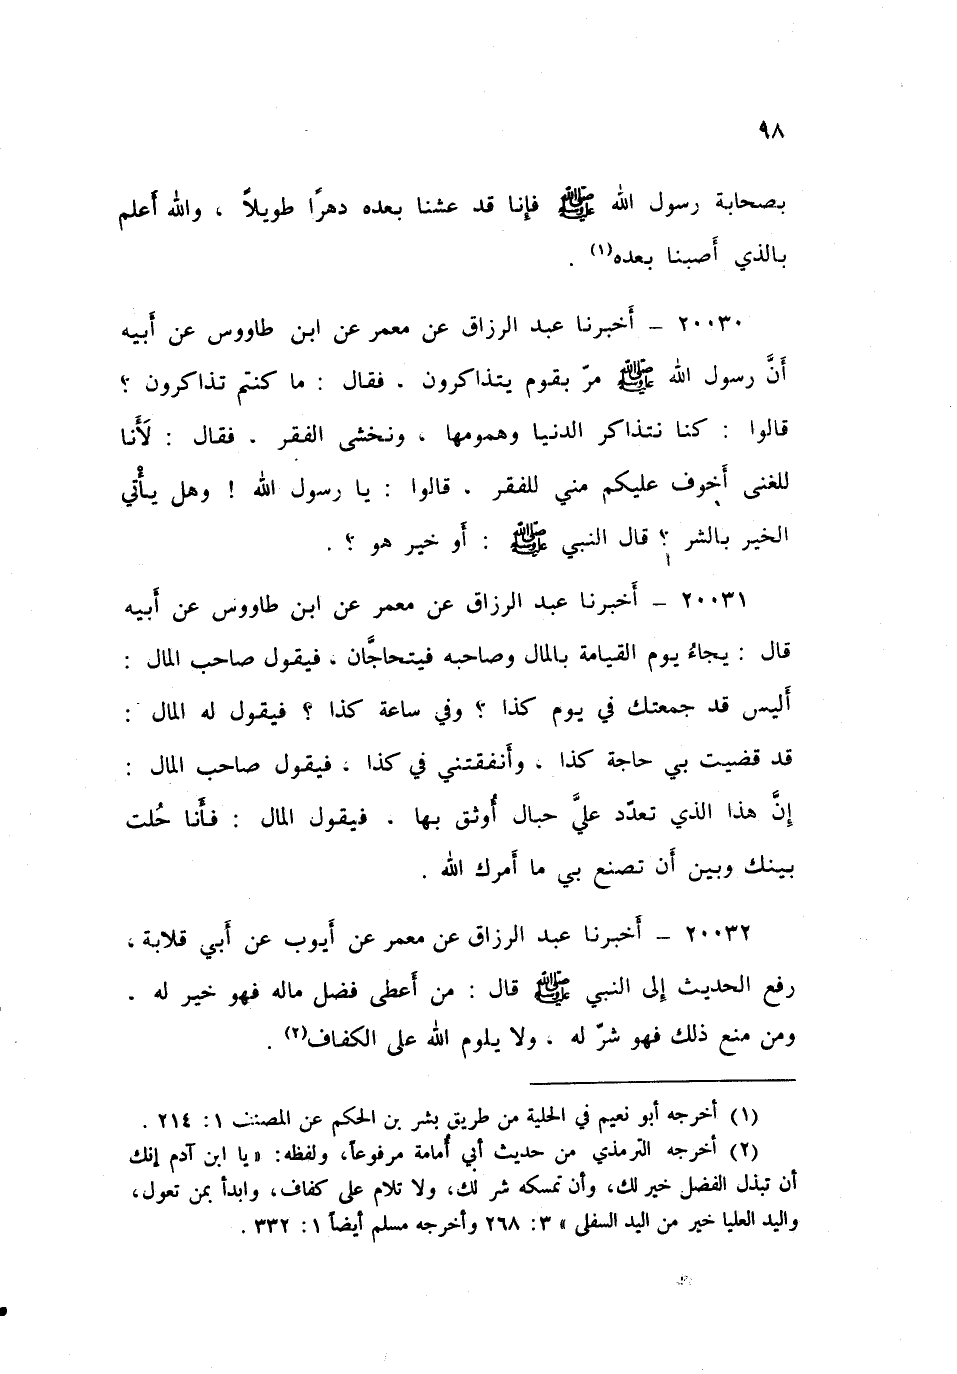 ٩٨
بصحابة رسول الله ﷺ فإنا قد عشنا بعده دهرًا طويلاً ، والله أعلم
بالذي أصبنا بعده(١) .
٢٠٠٣٠ – أخبرنا عبد الرزاق عن معمر عن ابن طاووس عن أبيه
أنَّ رسول الله ﷺ مرّ بقوم يتذاكرون . فقال : ما كنتم تذاكرون ؟
قالوا : كنا نتذاكر الدنيا وهمومها ، ونخشى الفقر . فقال : لَأَنا
للغنى أخوف عليكم مني للفقر . قالوا : يا رسول الله ! وهل يأتي
الخير بالشر ؟ قال النبي ﷺ : أو خير هو ؟ .
٢٠٠٣١ – أخبرنا عبد الرزاق عن معمر عن ابن طاووس عن أبيه
قال : يجاءُ يوم القيامة بالمال وصاحبه فيتحاجَّان ، فيقول صاحب المال :
أليس قد جمعتك في يوم كذا ؟ وفي ساعة كذا ؟ فيقول له المال :
قد قضيت بي حاجة كذا ، وأنفقتني في كذا ، فيقول صاحب المال :
إنَّ هذا الذي تعدّد عليَّ حبال أُوثق بها . فيقول المال : فأَنا حُلت
بينك وبين أن تصنع بي ما أمرك الله .
٢٠٠٣٢ – أخبرنا عبد الرزاق عن معمر عن أيوب عن أبي قلابة ،
رفع الحديث إلى النبي ﷺ قال : من أعطى فضل ماله فهو خير له .
ومن منع ذلك فهو شرّ له ، ولا يلوم الله على الكفاف(٢) .
(١) أخرجه أبو نعيم في الحلية من طريق بشر بن الحكم عن المصنف ١ : ٢١٤ .
(٢) أخرجه الترمذي من حديث أبي أُمامة مرفوعاً، ولفظه: « يا ابن آدم إنك
أن تبذل الفضل خير لك، وأن تمسكه شر لك، ولا تلام على كفاف، وابدأ بمن تعول،
واليد العليا خير من اليد السفلى » ٣: ٢٦٨ وأخرجه مسلم أيضاً ١ : ٣٣٢ .